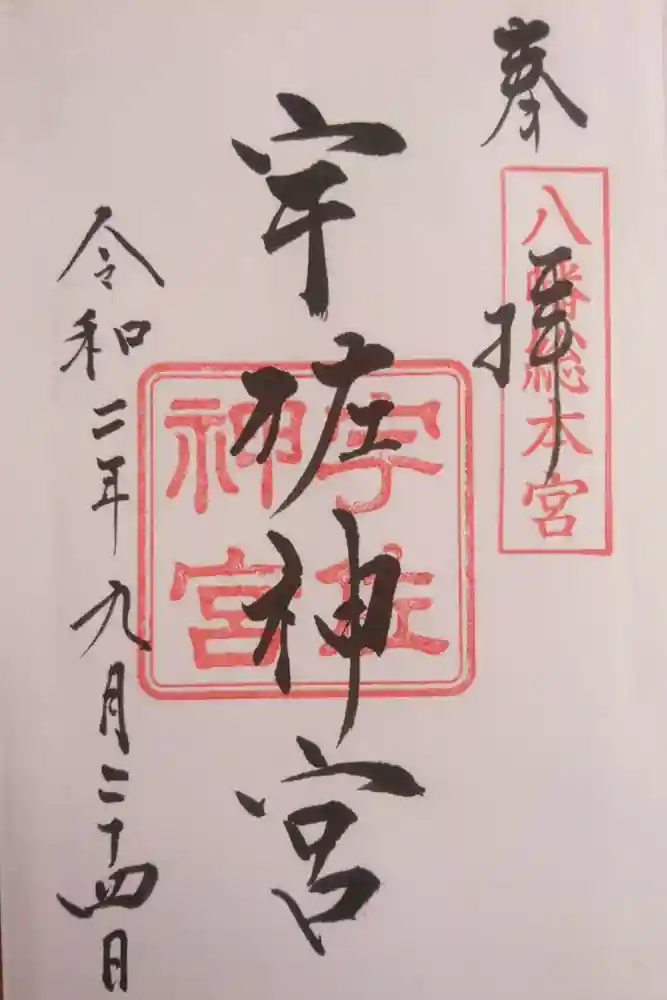 奉拝
八幡総本宮
宇佐神宮
宇佐
神宮
令和二年九月二十四日